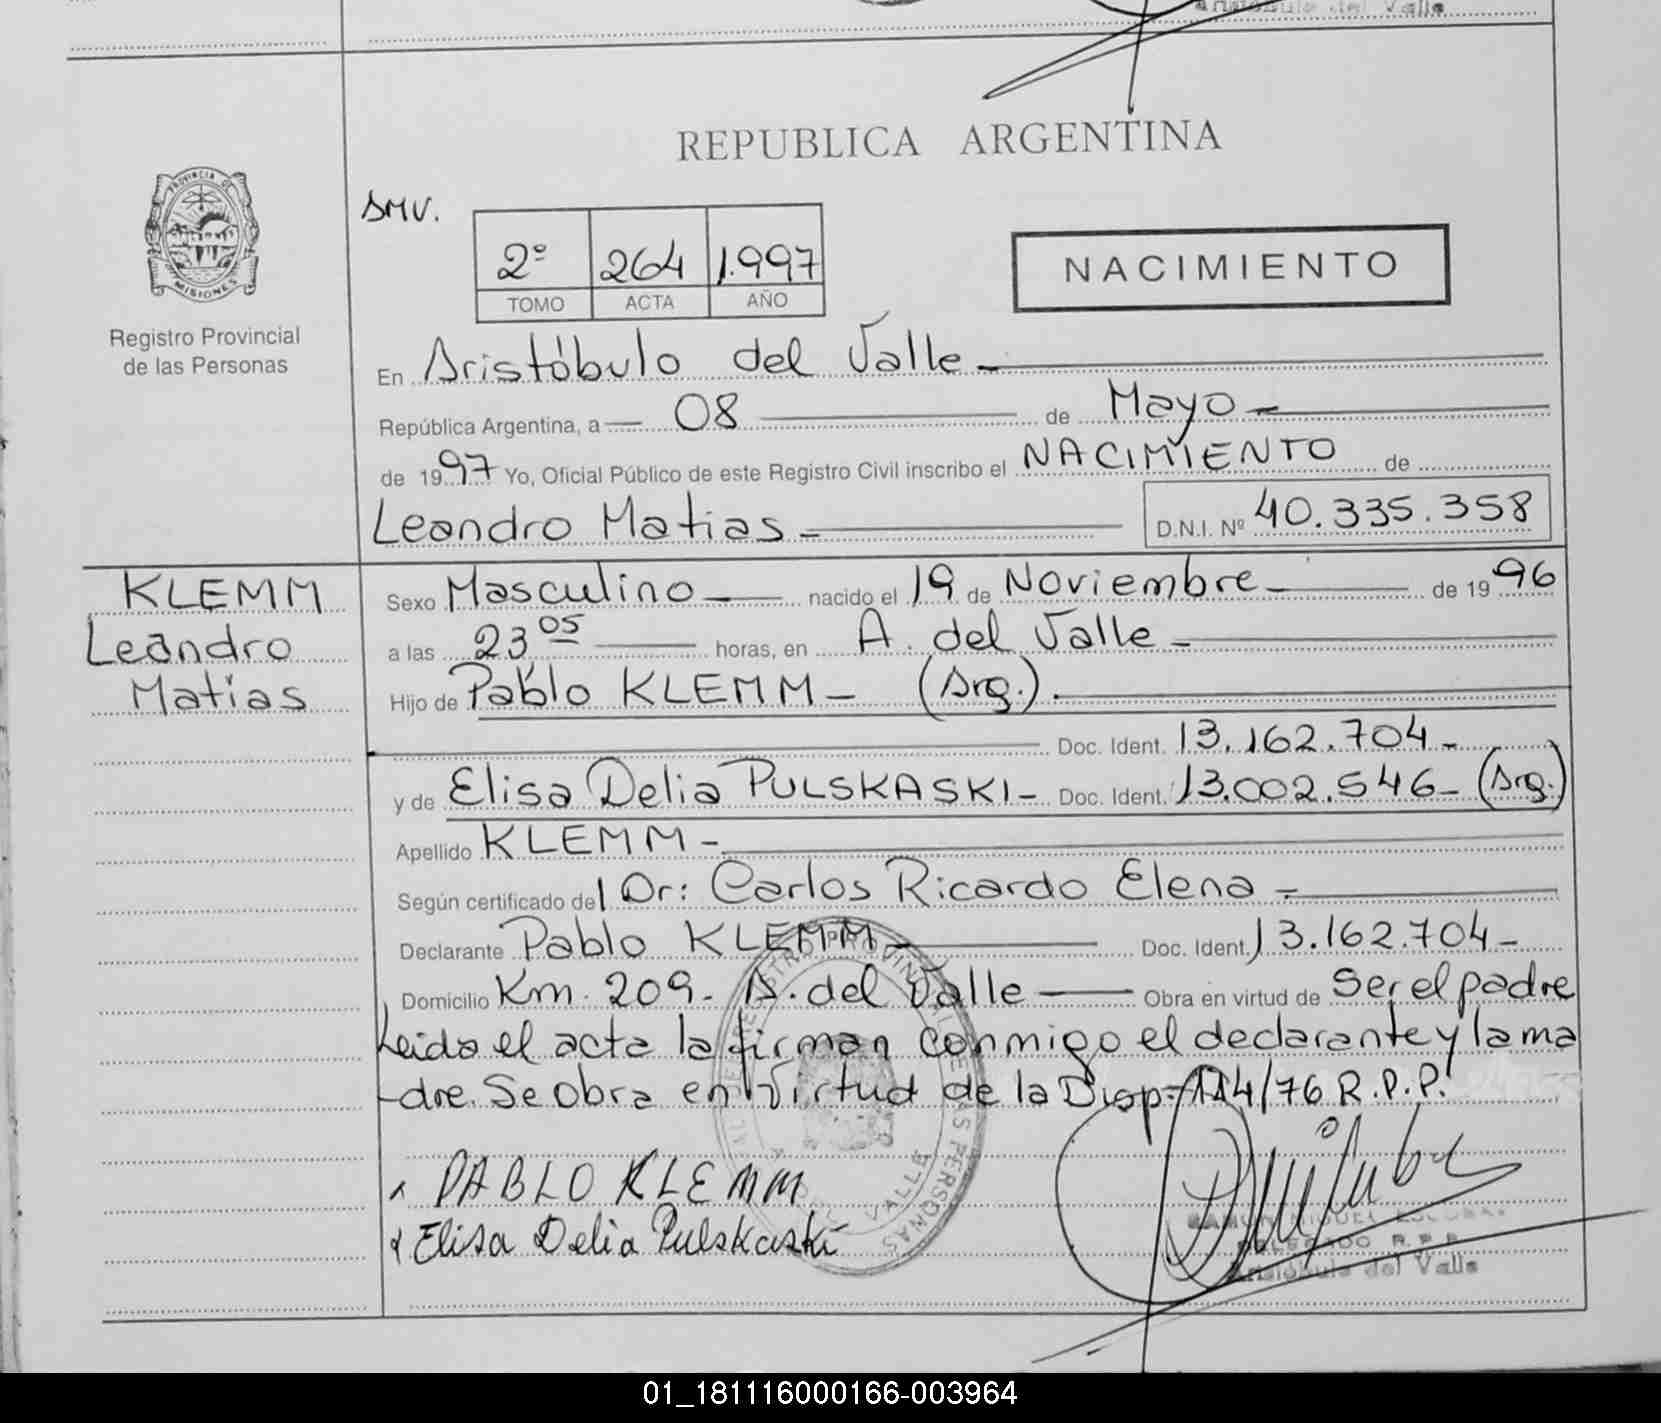 Aristóbulo del Valle
REPUBLICA ARGENTINA
PROVINCIA DE
MISIONES
Registro Provincial
de las Personas
SMV.
2º 264 1.997
TOMO ACTA AÑO
NACIMIENTO
En Aristóbulo del Valle -
República Argentina, a - 08 de Mayo -
de 1997 Yo, Oficial Público de este Registro Civil inscribo el NACIMIENTO de
Leandro Matias - D.N.I. Nº 40.335.358
KLEMM
Leandro
Matias
Sexo Masculino - nacido el 19 de Noviembre - de 1996
a las 23 05 horas, en A. del Valle -
Hijo de Pablo KLEMM - (Arg.).
Doc. Ident. 13.162.704 -
y de Elisa Delia PULSKASKI - Doc. Ident. 13.002.546 - (Arg.)
Apellido KLEMM -
Según certificado del Dr: Carlos Ricardo Elena -
Declarante Pablo KLEMM - Doc. Ident. 13.162.704 -
Domicilio Km. 209. A. del Valle - Obra en virtud de Ser el padre
Leida el acta la firman conmigo el declarante y la ma
-dre. Se obra en virtud de la Disp. 114/76 R.P.P.
PABLO KLEMM
Elisa Delia Pulskaski
RAMON MIGUEL ESCOBAR
DELEGADO R.P.P.
Aristóbulo del Valle
01_181116000166-003964